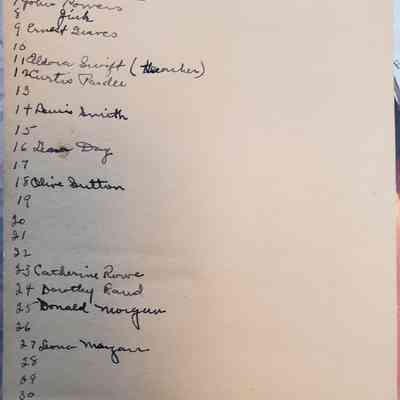 8
9 Ernest Graves
10
11 Eldora Swift (Teacher)
12 Curtis Pardee
13
14 Smith
15
16 Day
17
18 Olive Sutton
19
20
21
22
23 Catherine Rowe
24 Dorothy Rand
25 Donald Morgan
26
27
28
29
30